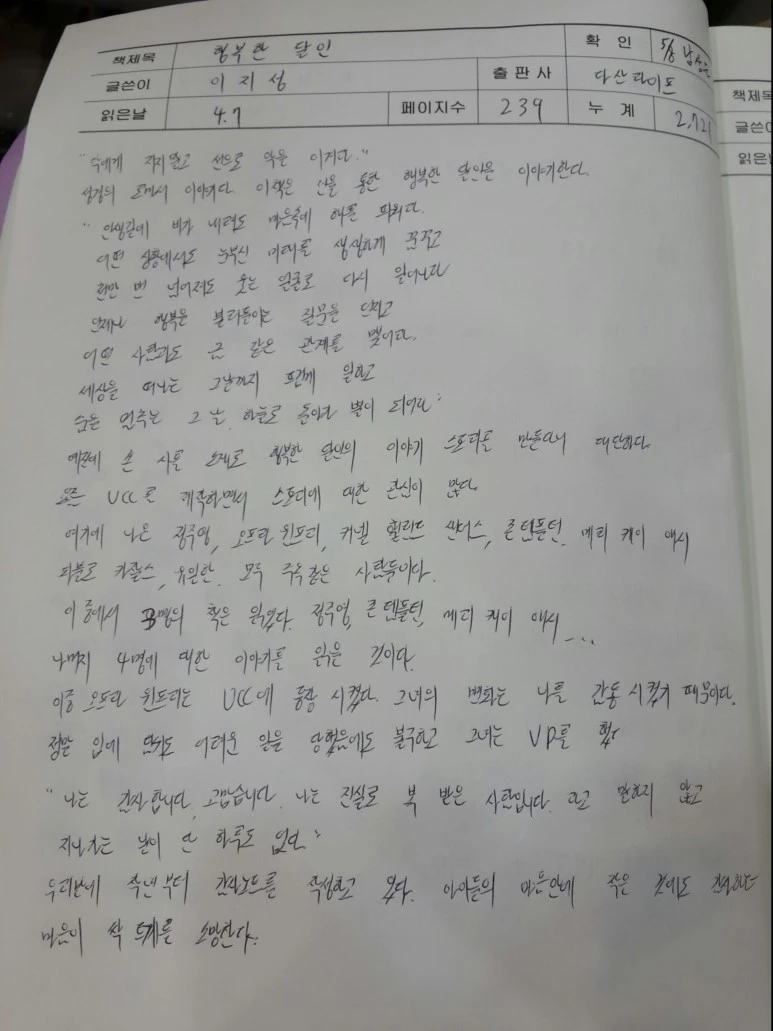 책제목 행복한 달인 확인 5/8
글쓴이 이지성 출판사 다산라이프
읽은날 4.7 페이지수 239 누계 2,721
"악에게 지지말고 선으로 악을 이겨라."
성경의 로마서 이야기다. 이책은 산을 통한 행복한 달인을 이야기한다.
"인생길에 비가 내려도 마음속에 해를 띄워라.
어떤 상황에서도 눈부신 미래를 생생하게 꿈꾸고
천만 번 넘어져도 웃는 얼굴로 다시 일어나라
언제나 행복을 불러들이는 질문을 던지고
어떤 사람과도 금 같은 관계를 맺어라.
세상을 떠나는 그날까지 뜨겁게 일하고
숨을 멈추는 그 날, 하늘로 돌아와 별이 되어라"
예전에 쓴 시를 소재로 행복한 달인의 이야기 스토리를 만들다니 대단하다.
요즘 UCC를 제작하면서 스토리에 대한 관심이 많다.
여기에 나온 정주영, 오프라 윈프리, 커넬 할랜드 샌더스, 존 템플턴, 메리 케이 애시
파블로 카잘스, 유일한. 모두 주옥같은 사람들이다.
이 중에서 3명의 책은 읽었다. 정주영, 존 템플턴, 메리 케이 애시...
나머지 4명에 대한 이야기를 읽은 것이다.
이중 오프라 윈프리는 UCC에 등장 시켰다. 그녀의 변화는 나를 감동 시켰기 때문이다.
정말 입에 담기도 어려운 일을 당했음에도 불구하고 그녀는 VD를 했다
"나는 감사합니다, 고맙습니다. 나는 진실로 복 받은 사람입니다. 라고 말하지 않고
지나가는 날이 단 하루도 없다."
우리반에 작년부터 감사노트를 작성하고 있다. 아이들의 마음안에 작은 것에도 감사하는
마음이 싹 트기를 소망한다.
책제목
글쓴
읽은